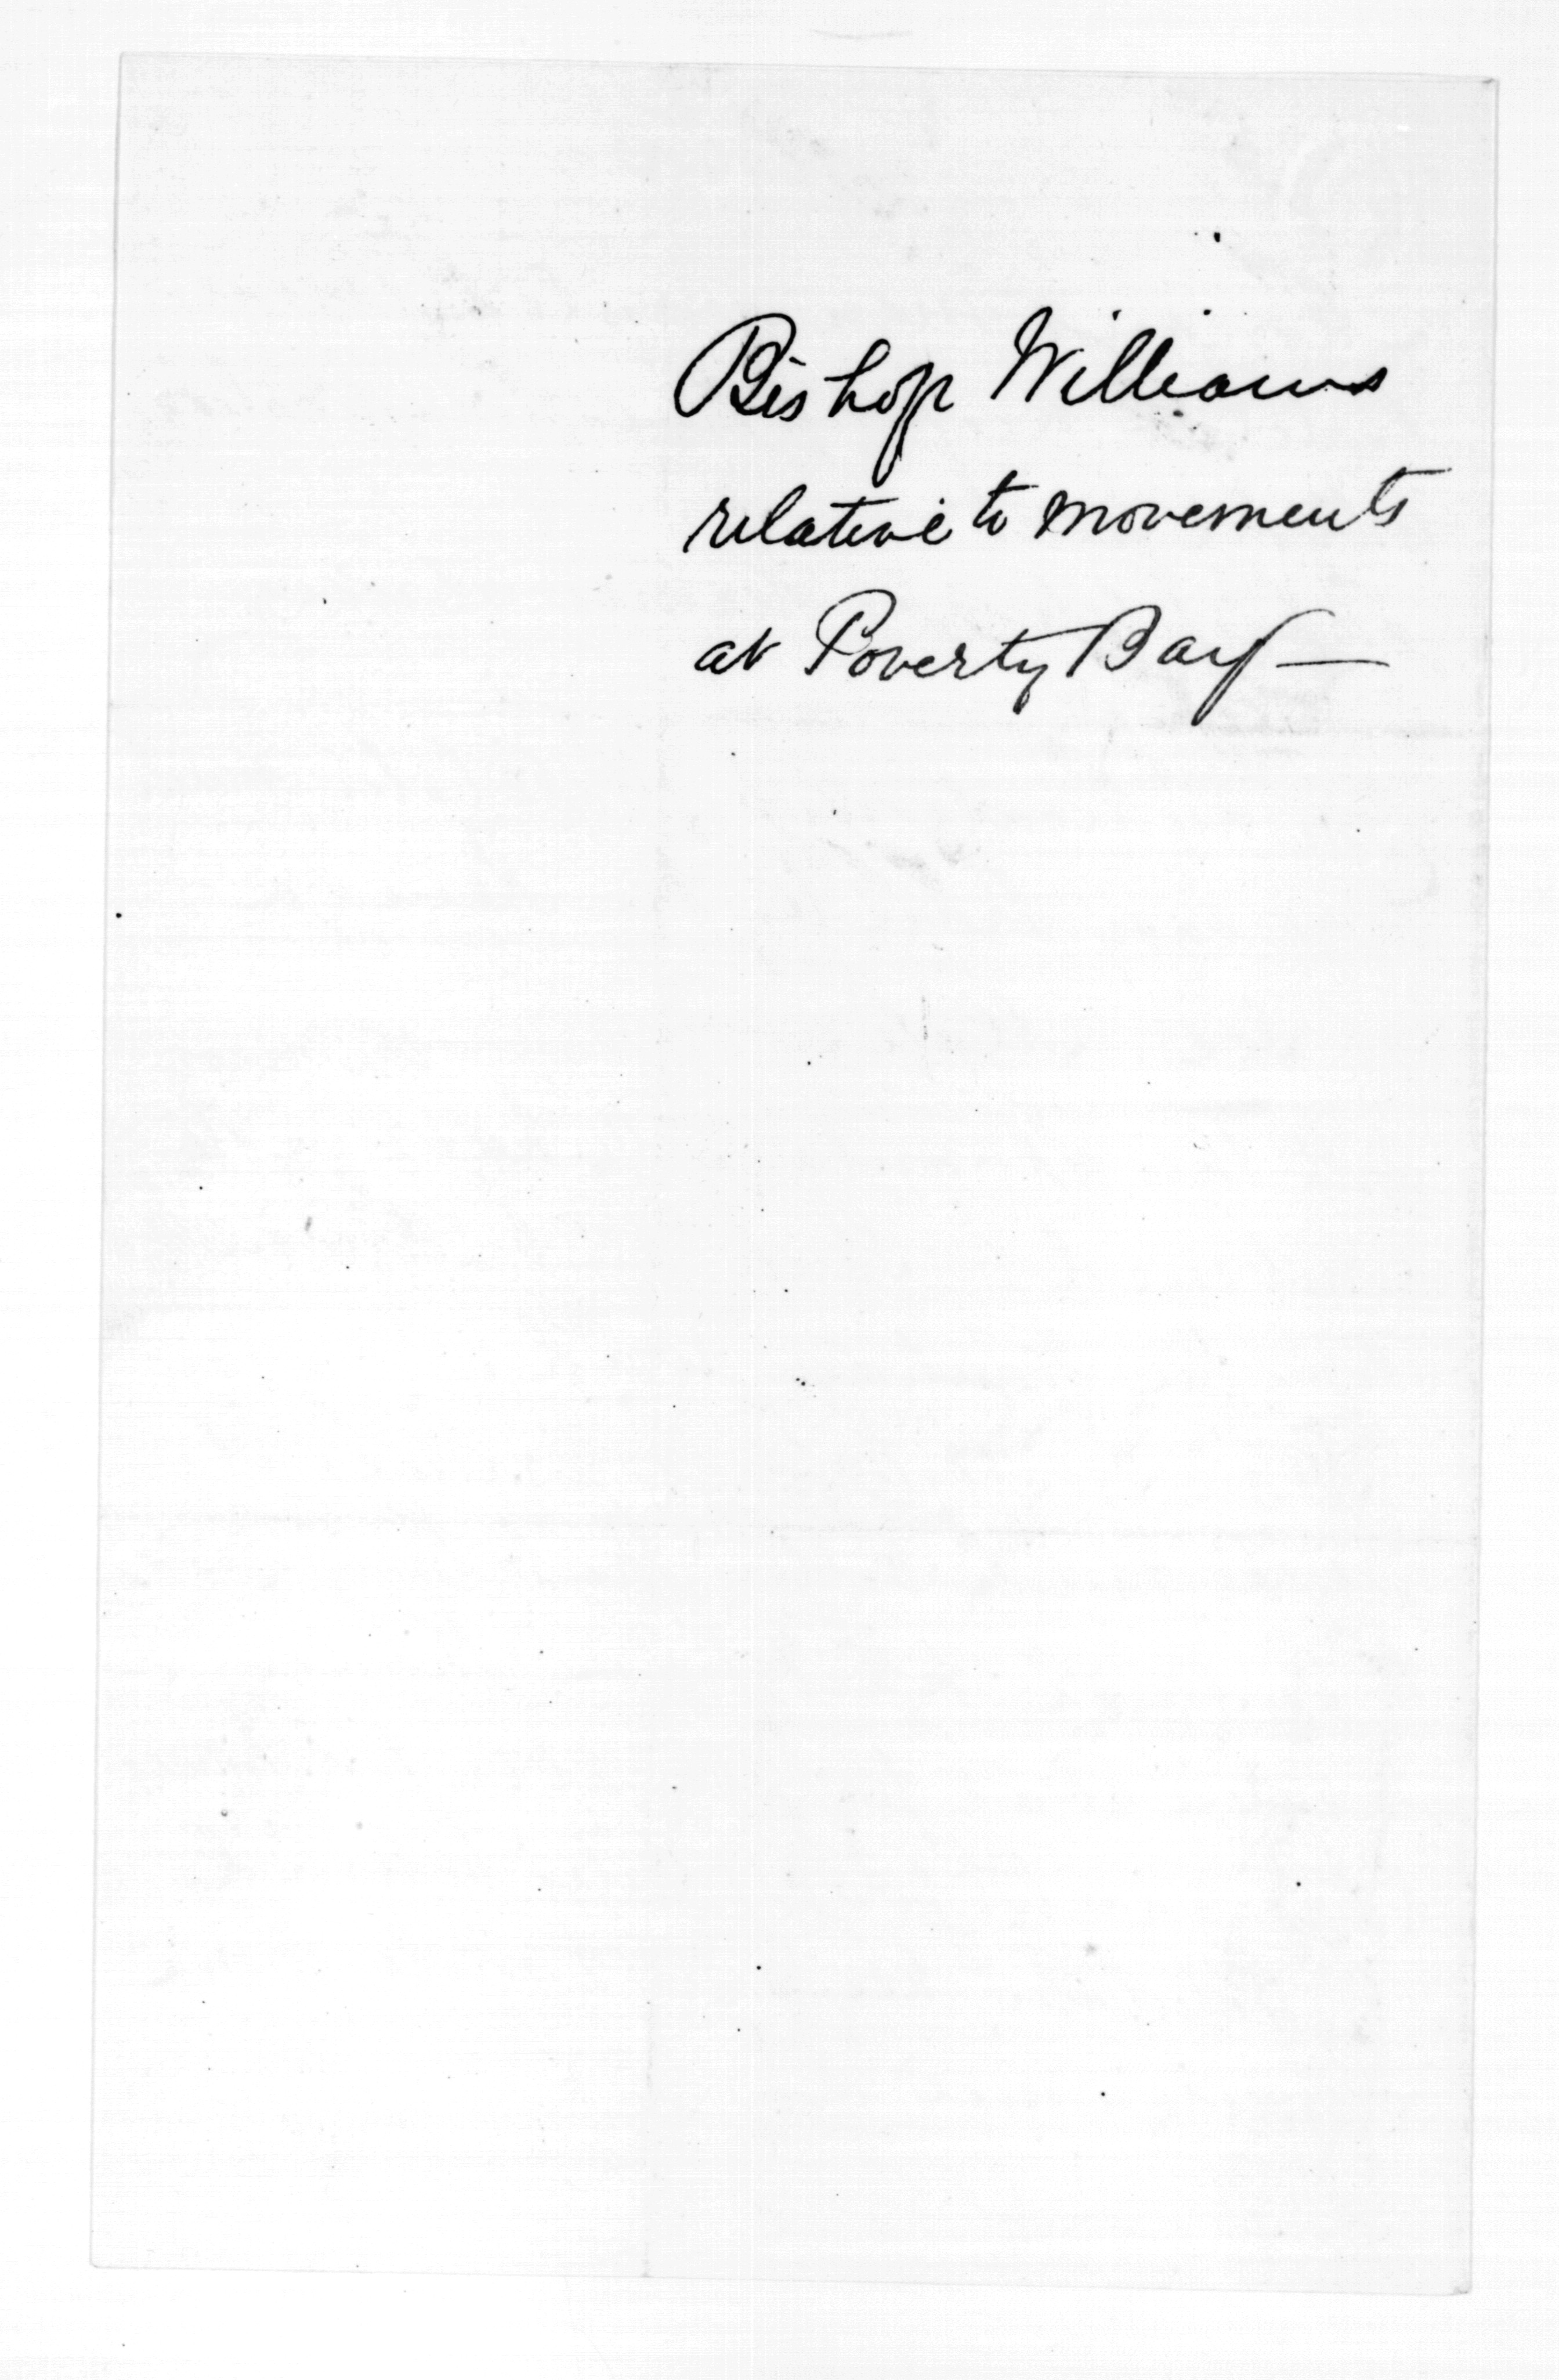 Bishop Williams
relative to movements
at Poverty Bay —